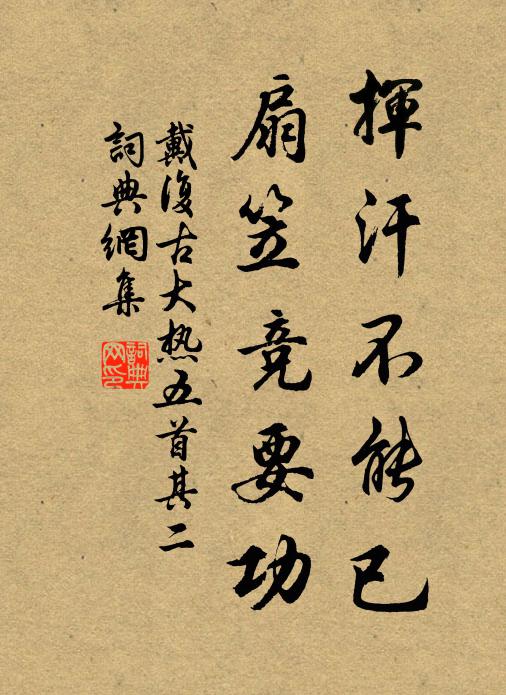 揮汗不能已
扇笠竞要功
戴復古大热五首其二
詞典網集
詞典网印